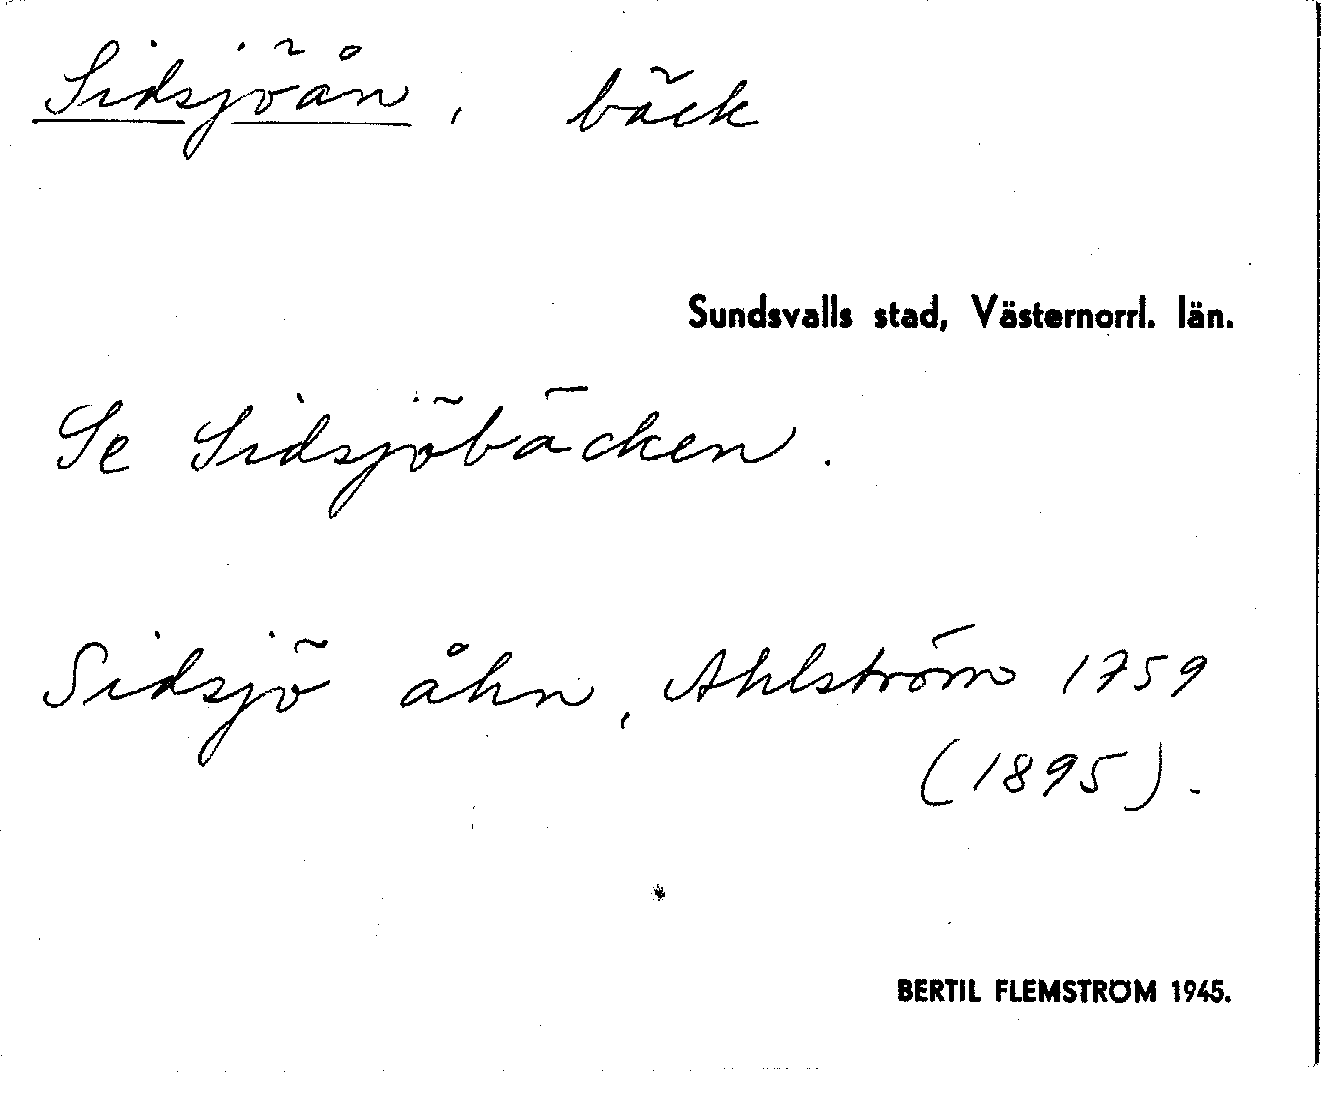 Sidsjöån, bäck
Sundsvalls stad, Västernorrl. län.
Se Sidsjöbäcken.
Sidsjö åhn, Ahlström 1759
(1895).
BERTIL FLEMSTRÖM 1945.